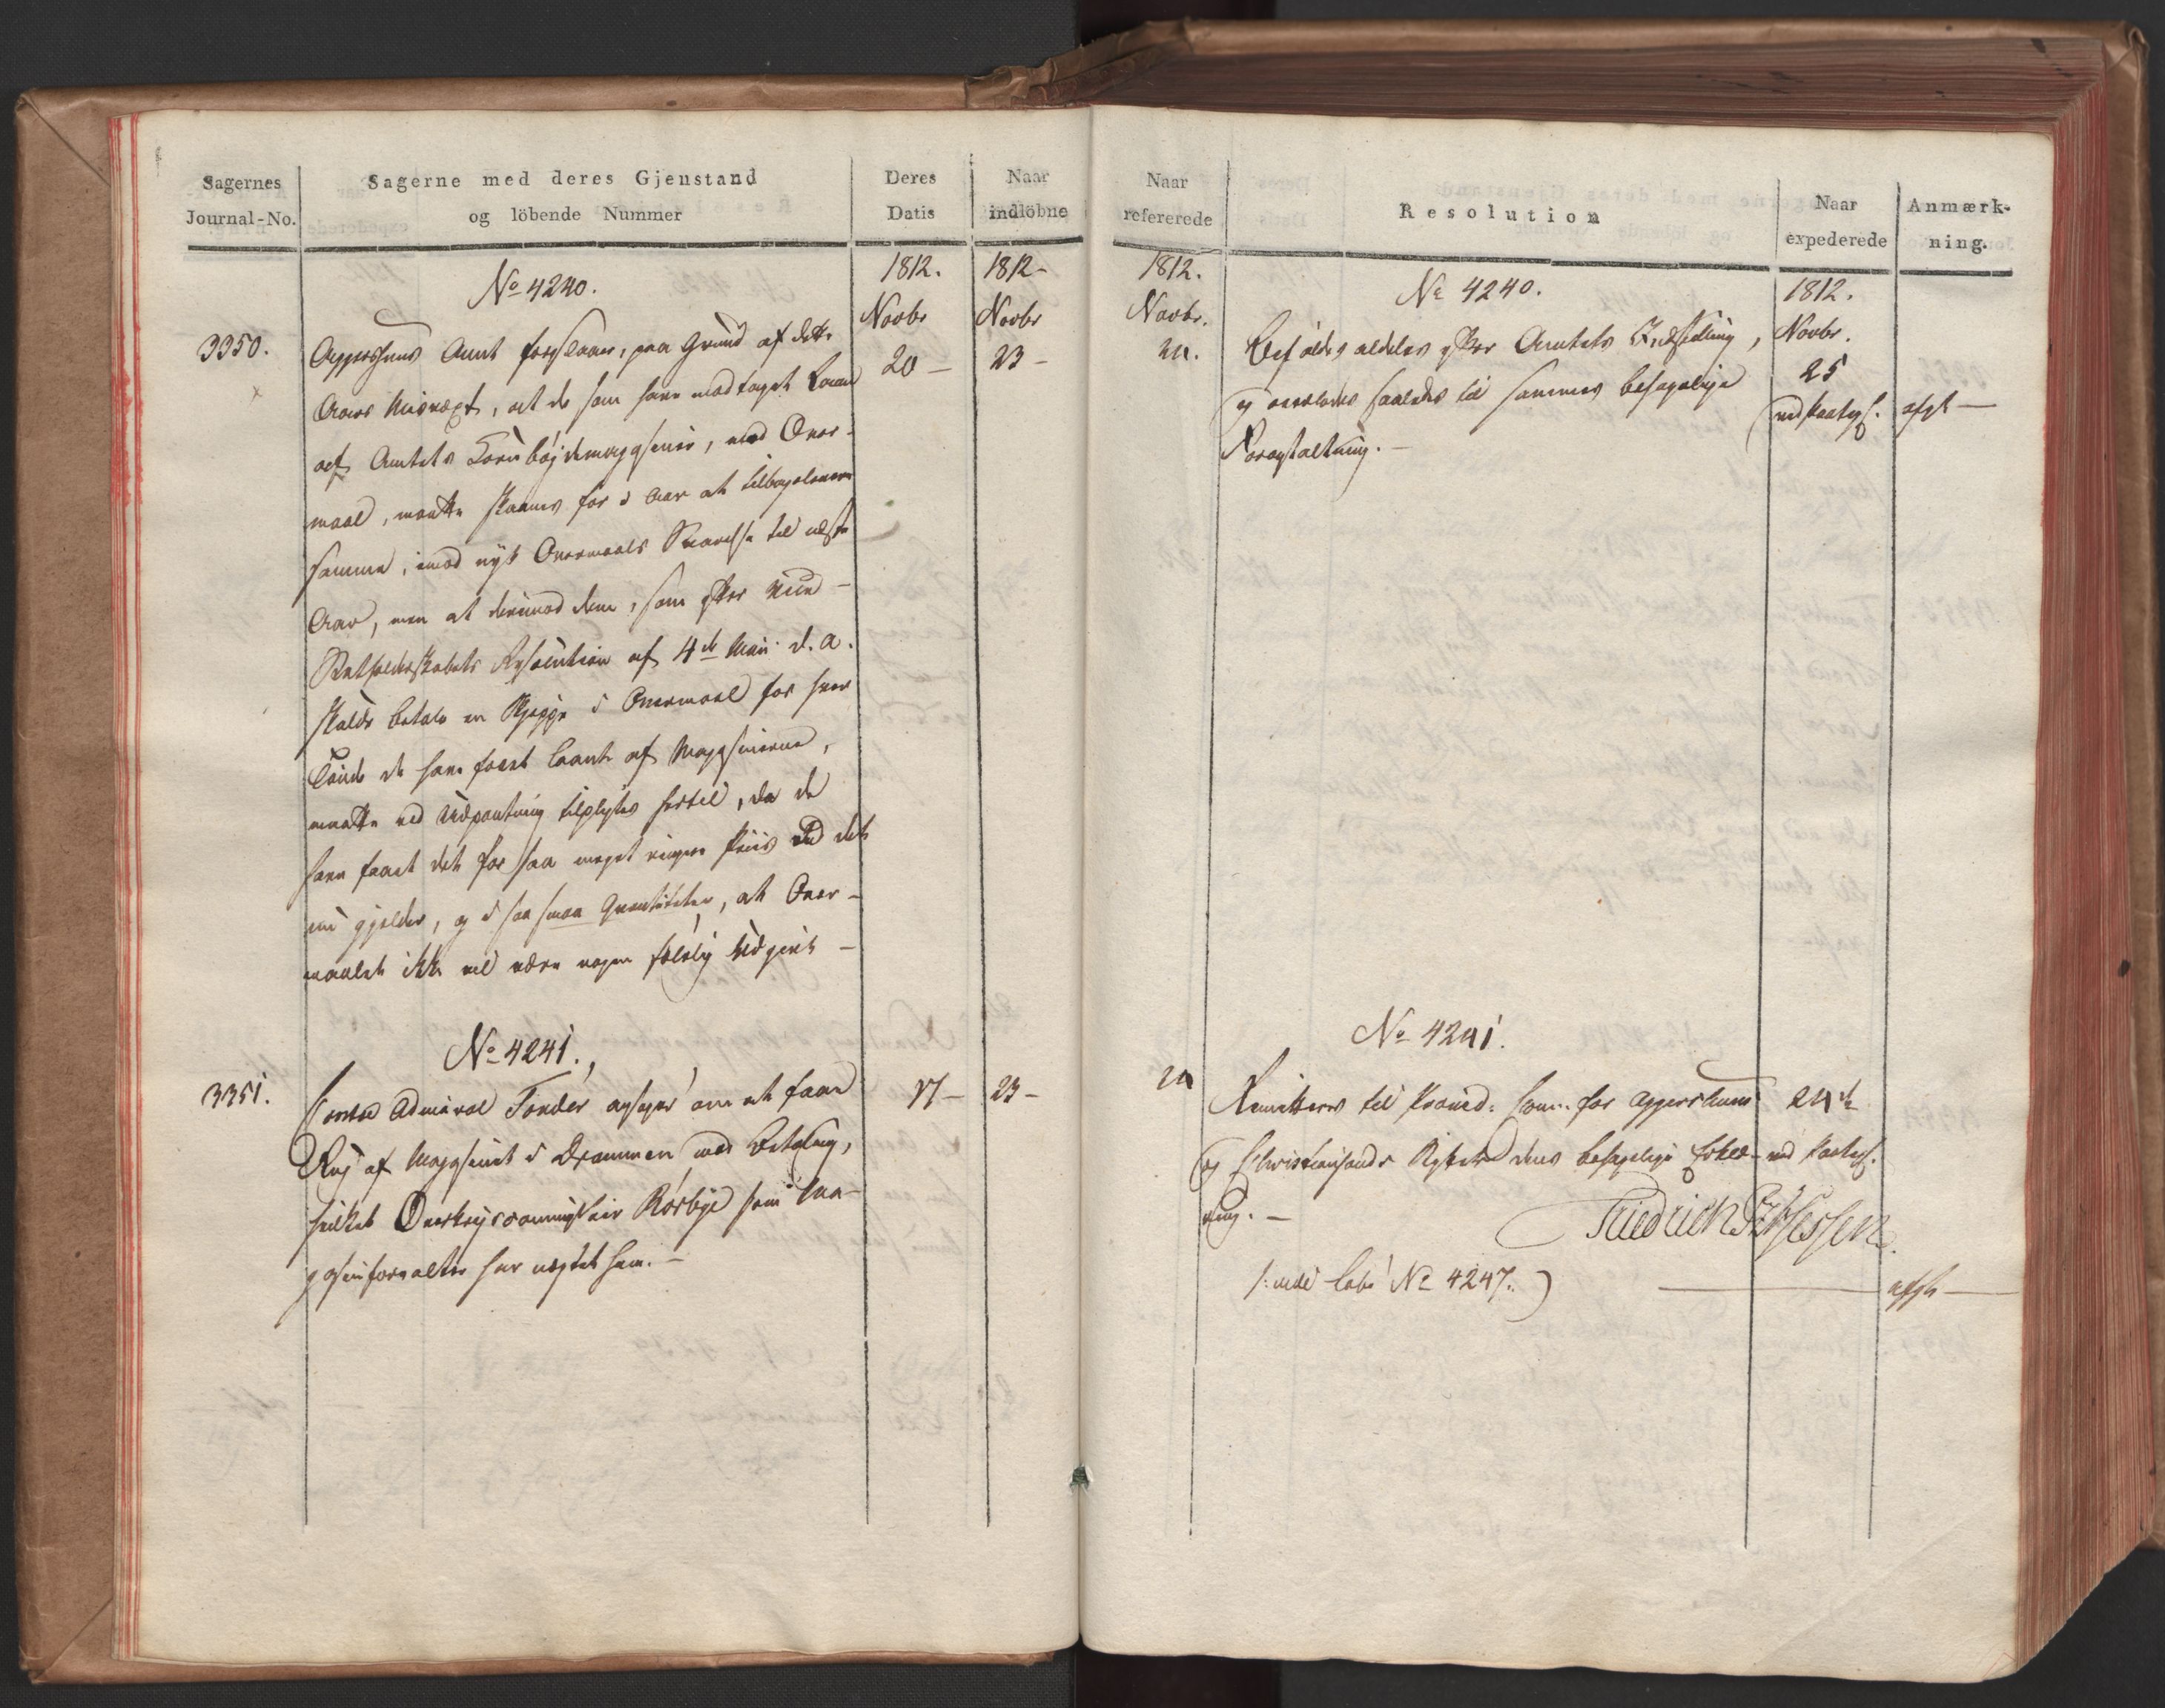 Sagernes
Journal-No.
Sagerne med deres Gjenstand
og löbende Nummer
Deres
Datis
Naar
indlöbne
No 4240.
1812.
1812-
Novbr
Novbr
3350.
20 -
23 -
Aggershuus Amt foreslaaer, paa Grund af dette
Aars Misvæxt, at de som have modtaget Laan
af Amtets Kornbøjdemagasiner, med Over-
maal, maatte skaanes for i Aar at tilbagelevere
samme, imod nyt Overmaals Svarelse til næste
Aar, men at derimod dem, som efter Vice-
Statholderskabets Resolution af 4de Maii d. A.
skulde betale en Skjeppe i Overmaal for hver
Tønde de have faaet laant af Magasinerne,
maatte ved Udpantning tilpligtes hertil, da de
have faaet det for saa meget ringere Priis end det
nu gjelder, og i saa smaa Quantiteter, at Over-
maalet ikke vil være nogen følelig Udgivt -
No 4241.
3351.
17 -
23 -
Contra Admiral Fonder ansøger om at faae
Rug af Magasinet i Drammen mod Betaling,
hvilket Overkrigscommissair Rørbye som Ma-
gasinforvalter har nægtet ham. -
Naar
refererede
Resolution
Naar
expederede
Anmærk-
ning.
1812.
No 4240.
1812.
Novbr.
Novbr.
24.
25
Bifaldes aldeles efter Amtets Indstilling,
og anmeldes saaledes til sammes behagelige
Foranstaltning. -
ved Paategn.
afgl -
No 4241.
24
24de
Remitteres til Provid: Com: for Aggershuus
og Christiansands Stifter dens behagelige Erklæ-
ring. -
ved Paategn.
Friedrich Pz z Hessen.
/: vide Løbe No 4247. )
afgl -